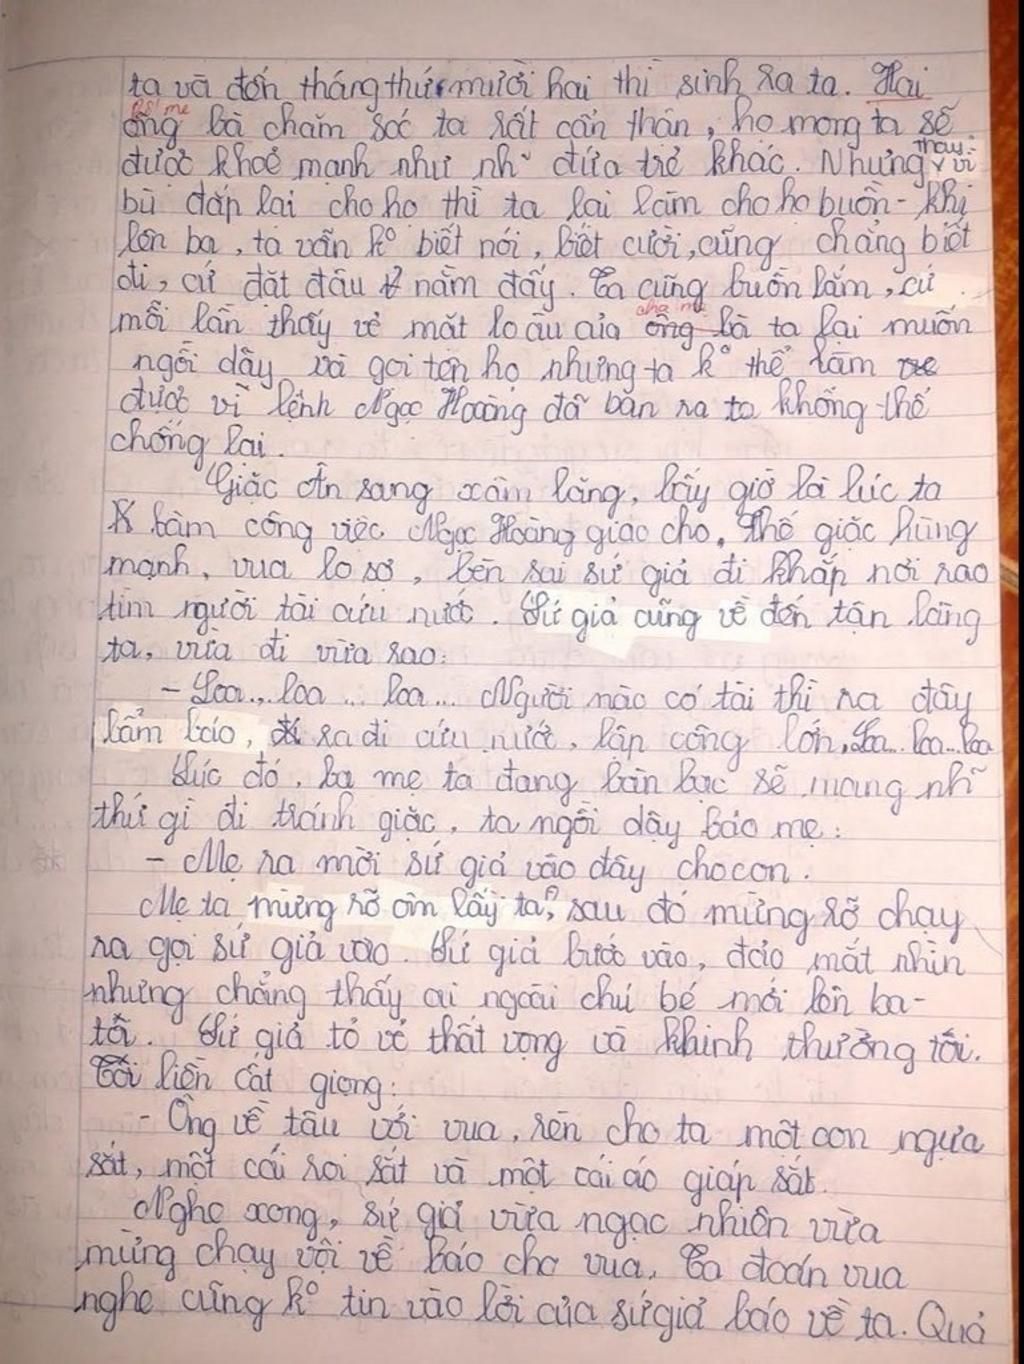 ta và đến tháng thứ mười hai thì sinh ra ta. Hai
bố mẹ
ông bà chăm sóc ta rất cẩn thận, họ mong ta sẽ
được khoẻ mạnh như nh~ đứa trẻ khác. Nhưng thay vì
bù đắp lại cho họ thì ta lại làm cho họ buồn - khi
lên ba, ta vẫn kº biết nói, biết cười, cũng chẳng biết
đi, cứ đặt đâu nằm đấy. Ta cũng buồn lắm, cứ
cha mẹ
mỗi lần thấy vẻ mặt lo âu của ông bà ta lại muốn
ngồi dậy và gọi tên họ nhưng ta kº thể làm
được vì lệnh Ngọc Hoàng đã ban ra ta không thể
chống lại.
Giặc Ân sang xâm lăng, bấy giờ là lúc ta
làm công việc Ngọc Hoàng giao cho. Thế giặc hùng
mạnh, vua lo sợ, bèn sai sứ giả đi khắp nơi rao
tìm người tài cứu nước. Sứ giả cũng về đến tận làng
ta, vừa đi vừa rao:
- Loa... loa... loa... Người nào có tài thì ra đây
bẩm báo, ra đi cứu nước, lập công lớn, Loa... loa... loa
Lúc đó, ba mẹ ta đang bàn bạc sẽ mang nh~
thứ gì đi tránh giặc, ta ngồi dậy bảo mẹ:
- Mẹ ra mời sứ giả vào đây cho con.
Mẹ ta mừng rỡ ôm lấy ta, sau đó mừng rỡ chạy
ra gọi sứ giả vào. Sứ giả bước vào, đảo mắt nhìn
nhưng chẳng thấy ai ngoài chú bé mới lên ba -
tôi. Sứ giả tỏ vẻ thất vọng và khinh thường tôi.
Tôi liền cất giọng:
- Ông về tâu với vua, rèn cho ta một con ngựa
sắt, một cái roi sắt và một cái áo giáp sắt.
Nghe xong, sứ giả vừa ngạc nhiên vừa
mừng chạy vội về báo cho vua. Ta đoán vua
nghe cũng kº tin vào lời của sứ giả báo về ta. Quả